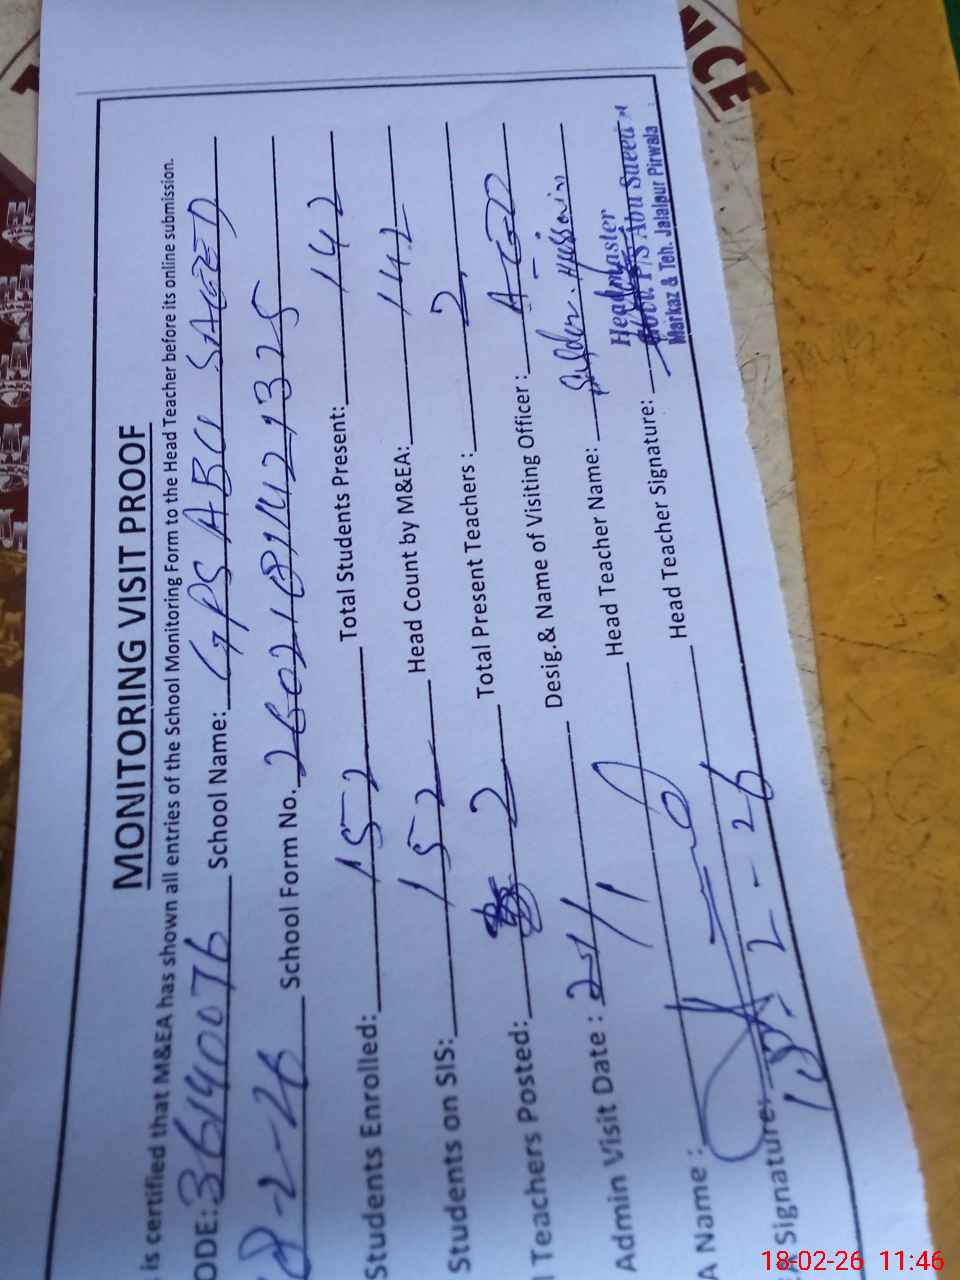 NCE
MONITORING VISIT PROOF
is certified that M&EA has shown all entries of the School Monitoring Form to the Head Teacher before its online submission.
ODE: 36140076 School Name: GPS ABU SAEED
8-2-26 School Form No. 26021811421325
Students Enrolled: 152 Total Students Present: 142
Students on SIS: 152 Head Count by M&EA: 142
Teachers Posted: 2 Total Present Teachers : 2
Admin Visit Date : Desig.& Name of Visiting Officer : AEO
A Name : Head Teacher Name: Hussain
A Signature: Head Teacher Signature:
18-2-26
Headmaster
Govt. P/S Abu Saeed
Markaz & Teh. Jalalpur Pirwala
18-02-26 11:46